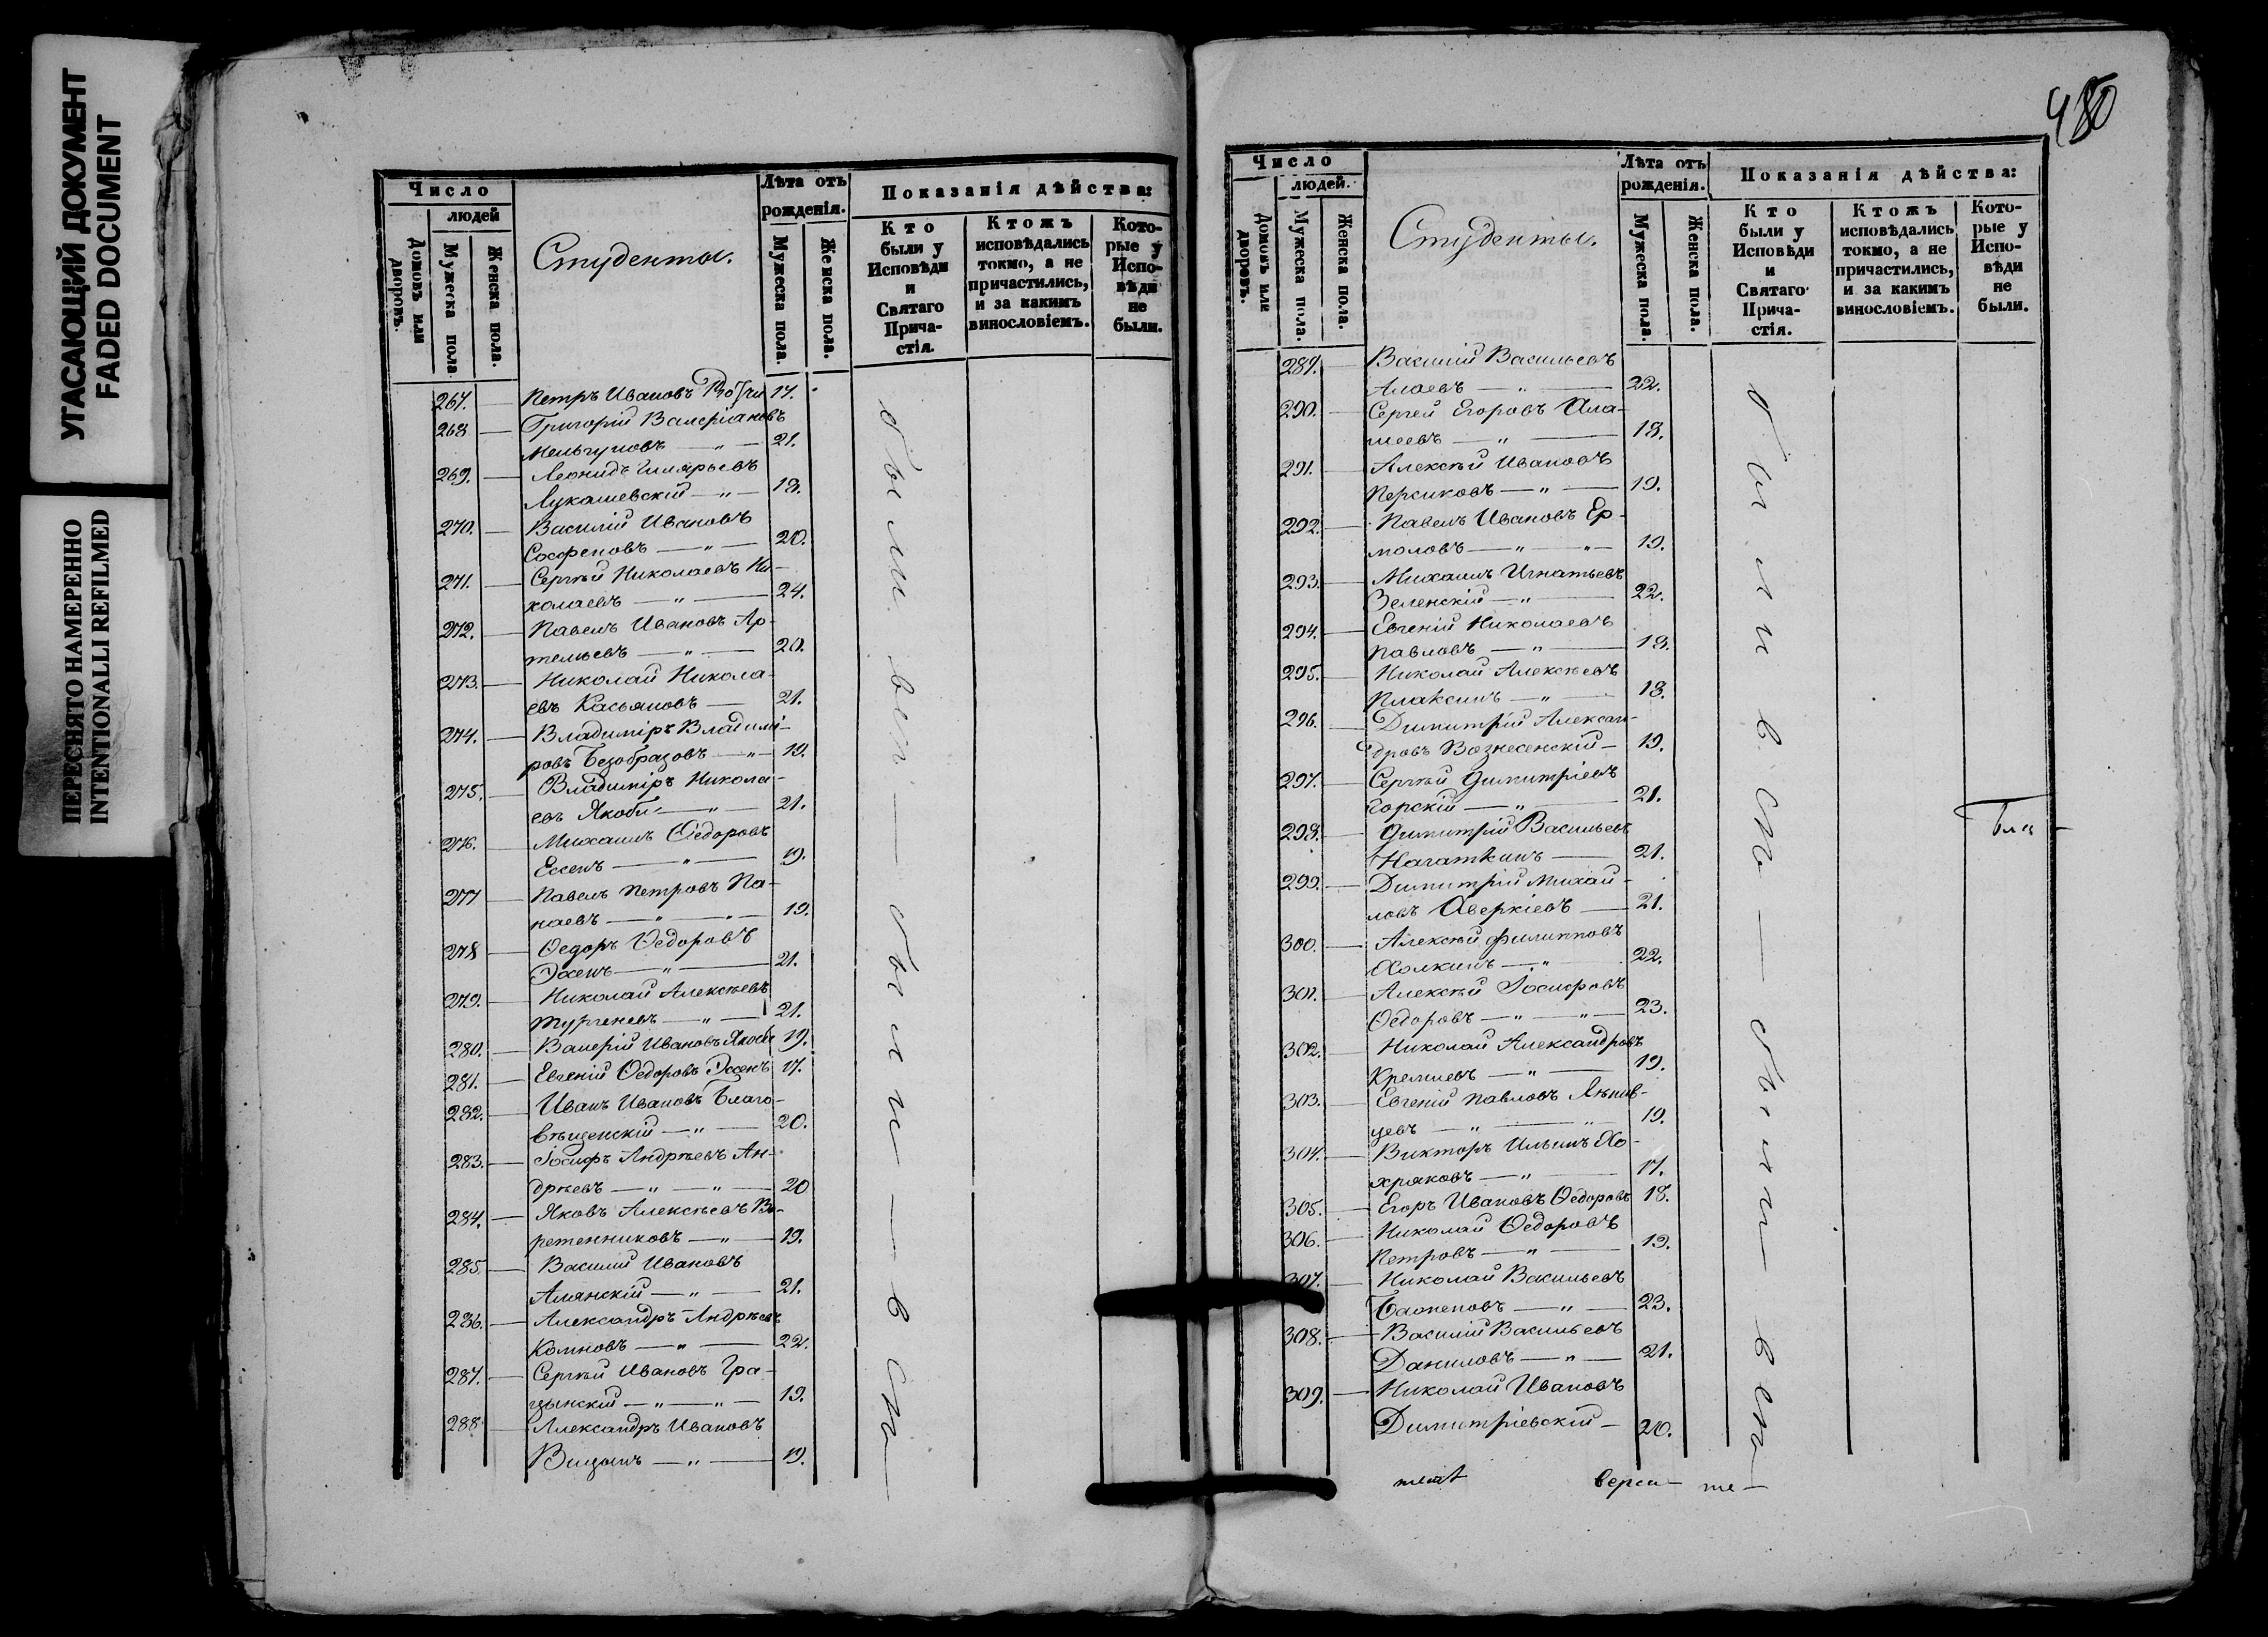 УГАСАЮЩИЙ ДОКУМЕНТ
FADED DOCUMENT
ПЕРЕСНЯТО НАМЕРЕННО
INTENTIONALLI REFILMED
Число
людей
Домовъ или дворовъ.
Мужеска пола
Женска пола.
Студенты.
Лѣта отъ рожденія.
Мужеска пола.
Женска пола.
Показанія дѣйства:
Кто были у Исповѣди и Святаго Прича-стія.
Ктожъ исповѣдались токмо, а не причастились, и за какимъ винословіемъ.
Кото-рые у Испо-вѣди не были.
267. Петръ Ивановъ 17.
268 Григорій Валеріановъ
Мельгуновъ — „ — 21.
269. Леонидъ
Лукашевскій — „ — 18.
270. Василій Ивановъ
Сосфеновъ — „ — 20.
271. Сергѣй Николаевъ Ни-
колаевъ — „ — 24.
272. Павелъ Ивановъ Ар-
темьевъ — „ — 20.
273. Николай Никола-
евъ Касьяновъ — 21.
274. Владиміръ Владимі-
ровъ Безобразовъ — „ — 19.
275. Владиміръ Никола-
евъ Якоби — „ — 21.
276. Михаилъ Ѳедоровъ
Ессенъ — „ — 19.
277 Павелъ Петровъ Па-
наевъ — „ — „ — 19.
278 Ѳедоръ Ѳедоровъ
Эссенъ — „ — 21.
279. Николай Алексѣевъ
Тургеневъ — „ — 21.
280. Валерій Ивановъ Якоби 19.
281. Евгеній Ѳедоровъ Эссенъ 17.
282. Иванъ Ивановъ Благо-
вѣщенскій — „ — 20.
283. Іосифъ Андрѣевъ Ан-
дрѣевъ — „ — „ — 20
284. Яковъ Алексѣевъ Ве-
ретенниковъ — „ — 19.
285. Василій Ивановъ
Алянскій — „ — 21.
286. Александръ Андрѣевъ
— „ — 22.
287. Сергѣй Ивановъ Гра-
цынскій — „ — „ — 19.
288 Александръ Ивановъ
— „ — 19.
были вси — были — вси —
480
Число
людей.
Домовъ или дворовъ.
Мужеска пола
Женска пола.
Студенты.
Лѣта отъ рожденія.
Мужеска пола.
Женска пола.
Показанія дѣйства:
Кто были у Исповѣди и Святаго Прича-стія.
Ктожъ исповѣдались токмо, а не причастились, и за какимъ винословіемъ.
Кото-рые у Испо-вѣди не были.
289. Василій Васильевъ
Алаевъ — „ — 22.
290. Сергей Егоровъ Ала-
шеевъ — „ — 18.
291. Алексѣй Ивановъ
Персиковъ — „ — 19.
292. Павелъ Ивановъ Ер-
моловъ — „ — „ — 19.
293. Михаилъ Игнатьевъ
Зеленскій — „ — 22.
294. Евгеній Николаевъ
Павловъ — „ — 18.
295. Николай Алексѣевъ
Плаксинъ — „ — 18.
296. Димитрій Алексан-
дровъ Вознесенскій — 19.
297. Сергѣй Димитріевъ
Горскій — „ — 21.
298. Димитрій Васильевъ
Нагаткинъ — 21.
299. Димитрій Михай-
ловъ Аверкіевъ — 21.
300. Алексѣй Филипповъ
Холкинъ — „ — 22.
301. Алексѣй Іосифовъ
Ѳедоровъ — „ — „ — 23.
302. Николай Александровъ
Кремлевъ — „ — 19.
303. Евгеній Павловъ Лѣнив-
цевъ — „ — „ 19.
304. Викторъ Ильинъ Хо-
хряковъ — „ — 17.
305. Егоръ Ивановъ Ѳедоровъ 18.
306. Николай Ѳедоровъ
Петровъ — „ — 19.
307. Николай Васильевъ
— „ — 23.
308. Василій Васильевъ
Даниловъ — „ — 21.
309. Николай Ивановъ
Димитріевскій — 20.
были вси — были — вси —
Бла-
верси- те-